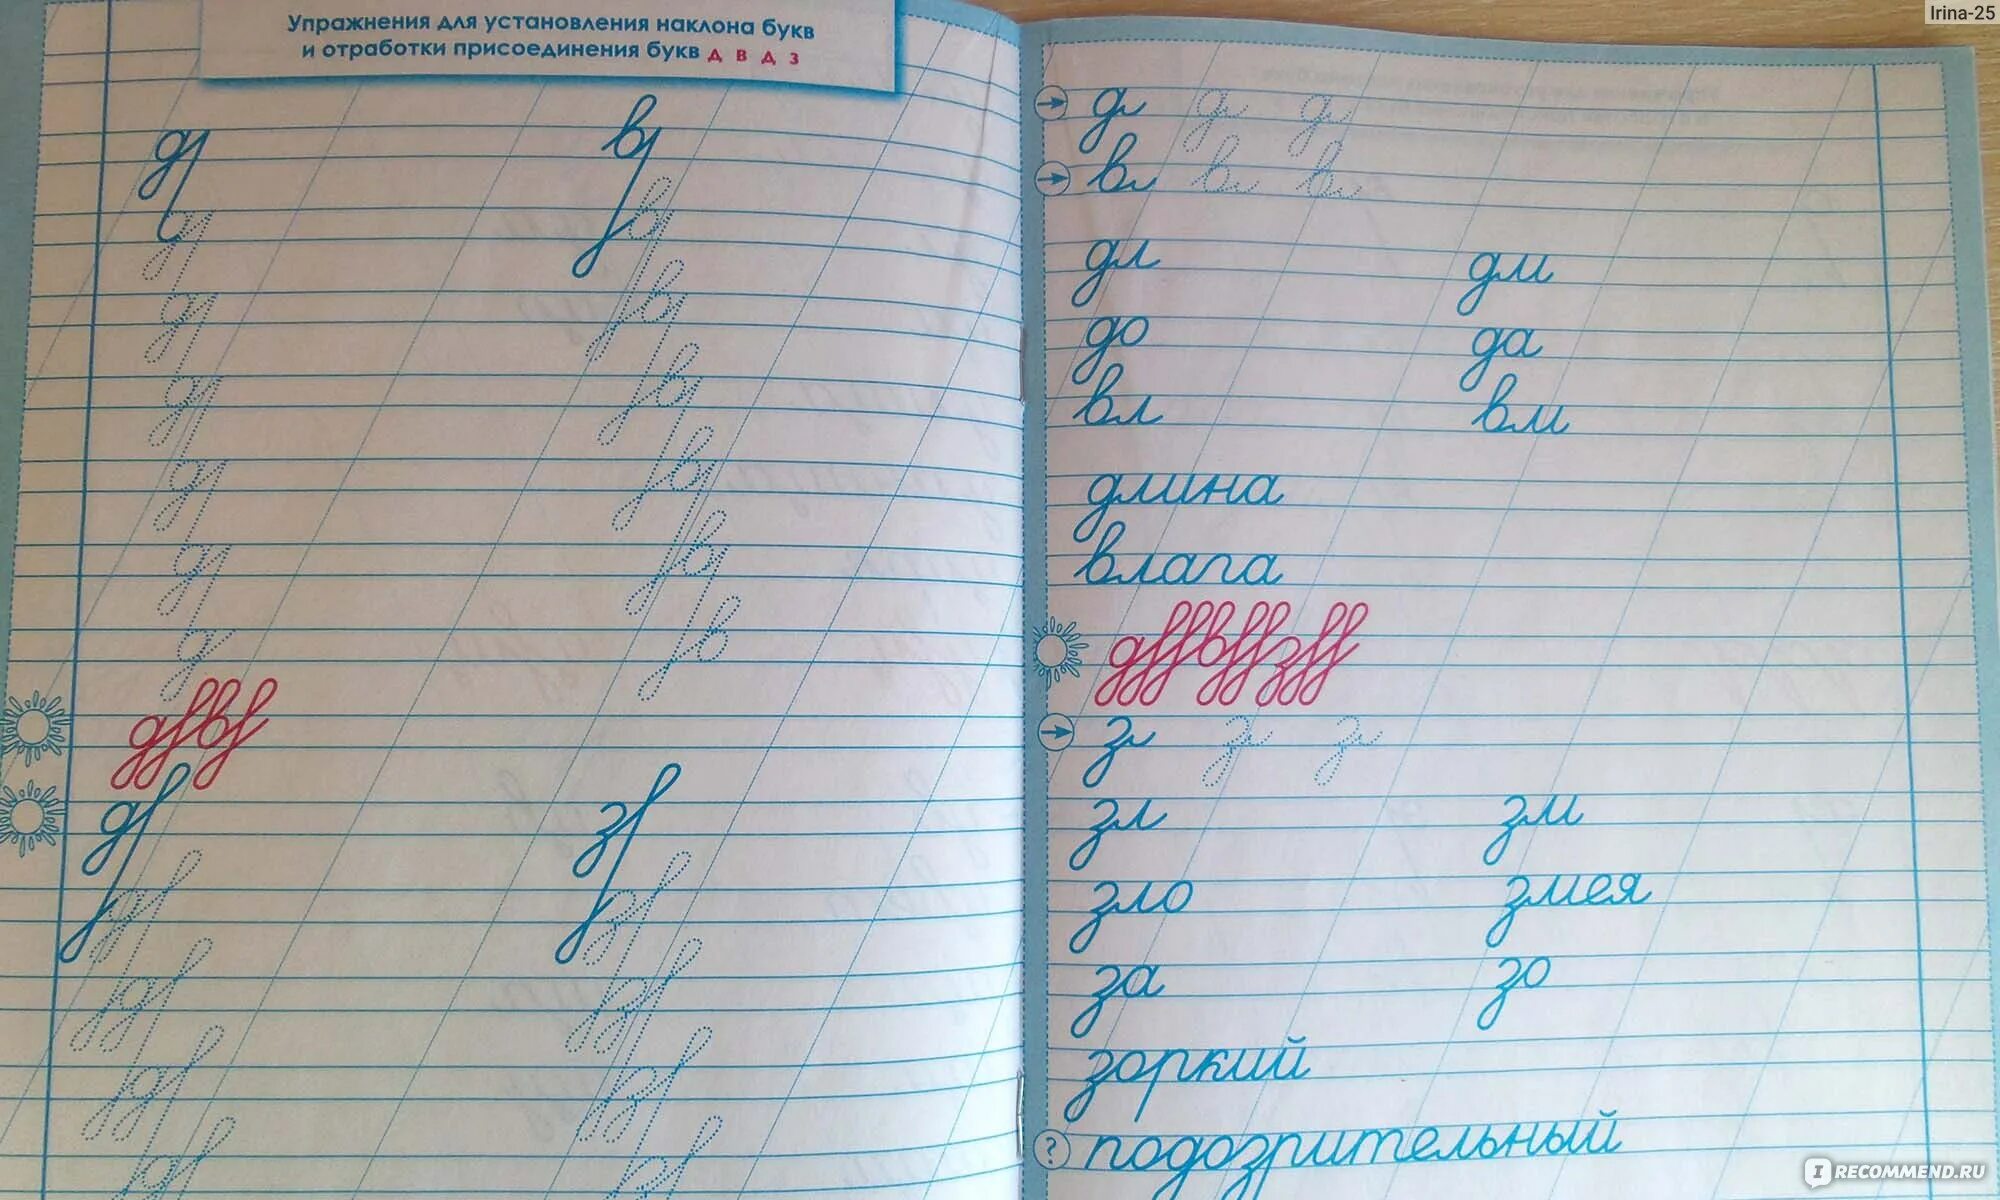 Irina-25
Упражнения для установления наклона букв
и отработки присоединения букв д в д з
д в
д з
д д д
в в в
дл дм
до да
вл вм
длина
влага
з з з
зл зм
зло змея
за зо
зоркий
? подозрительный
I RECOMMEND.RU